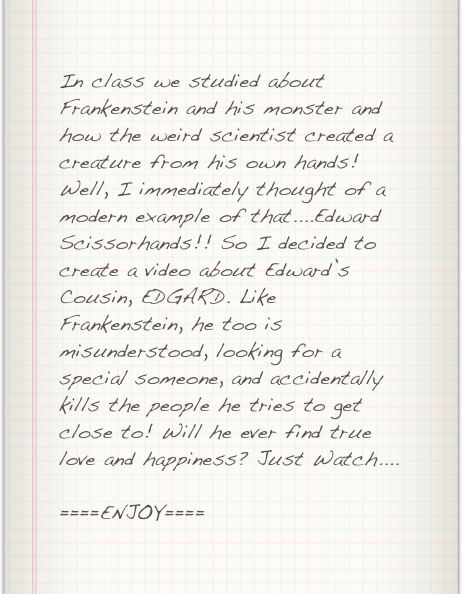 In class we studied about
Frankenstein and his monster and
how the weird scientist created a
creature from his own hands!
Well, I immediately thought of a
modern example of that....Edward
Scissorhands!! So I decided to
create a video about Edward`s
Cousin, EDGARD. Like
Frankenstein, he too is
misunderstood, looking for a
special someone, and accidentally
kills the people he tries to get
close to! Will he ever find true
love and happiness? Just Watch....
====ENJOY====